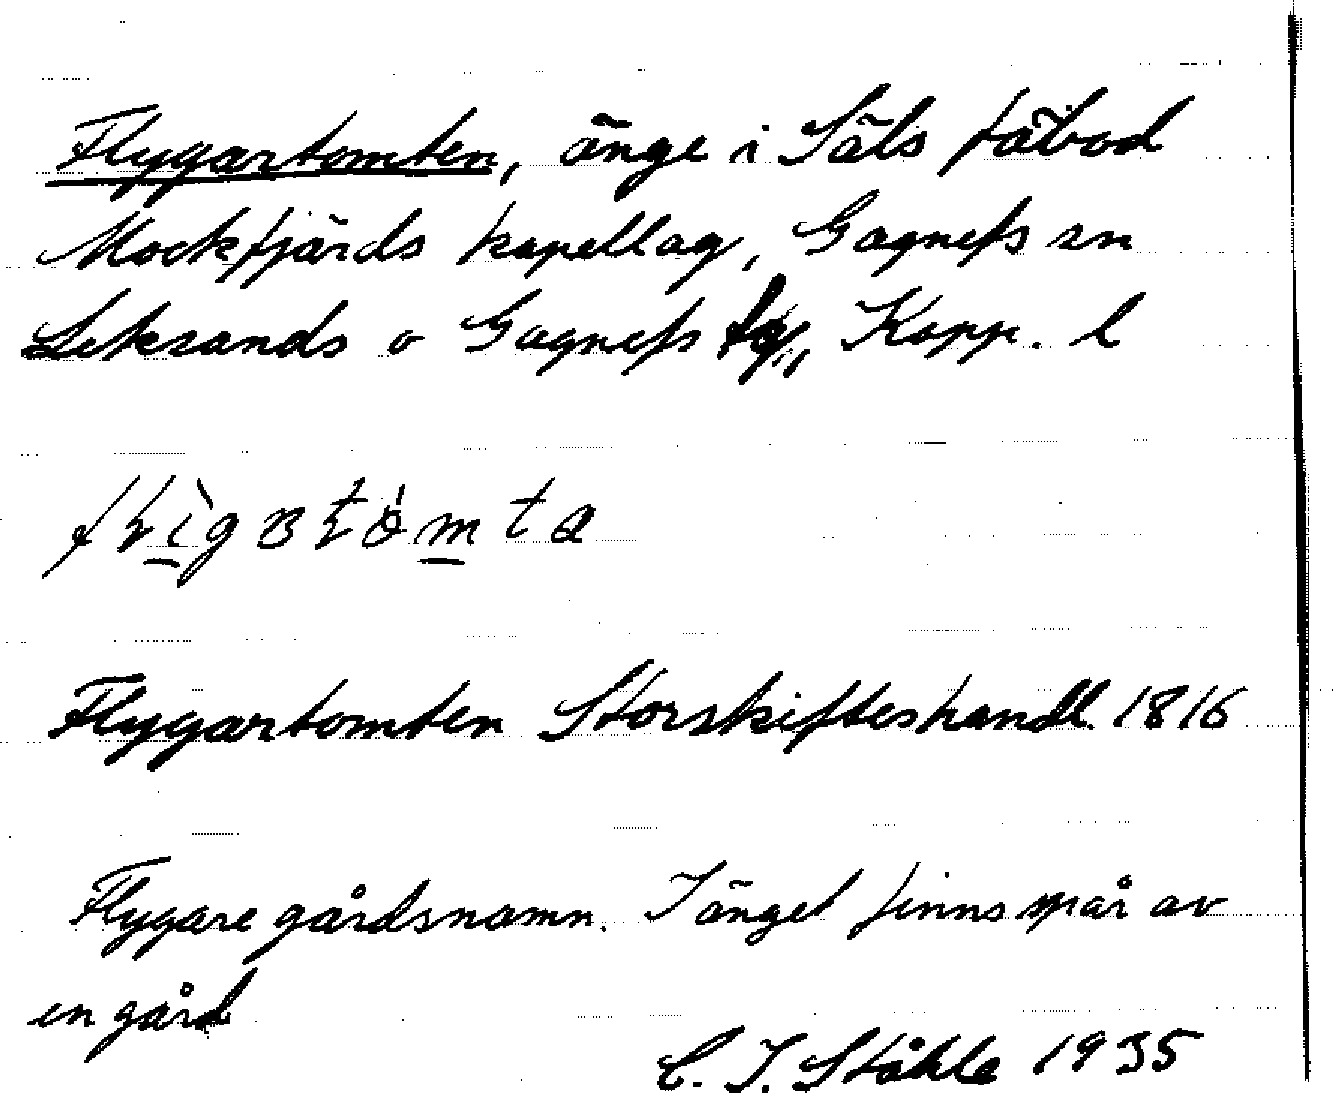 Flygartomten, änge i Säls fäbod
Mockfjärds kapellag, Gagnefs sn
Leksands o Gagnefs tg, Kopp. l
Flygartomten Storskifteshandl. 1816
Flygare gårdsnamn. I änget finns spår av
en gård
C. I. Ståhle 1935